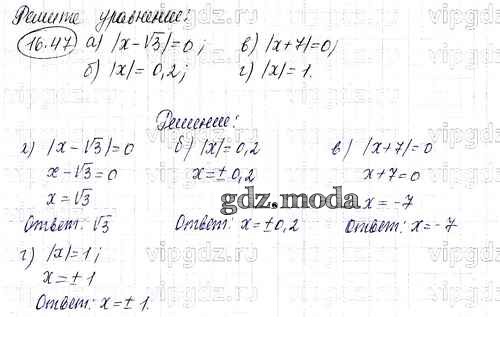 Решите уравнение:
16.47 а) |x-√3|=0; в) |x+7|=0;
б) |x|=0,2; г) |x|=1.
Решение:
а) |x-√3|=0 б) |x|=0,2 в) |x+7|=0
x-√3=0 x=±0,2 x+7=0
x=√3 x=-7
gdz.moda
Ответ: √3 Ответ: x=±0,2 Ответ: x=-7
г) |x|=1;
x=±1
Ответ: x=±1.
vipgdz.org